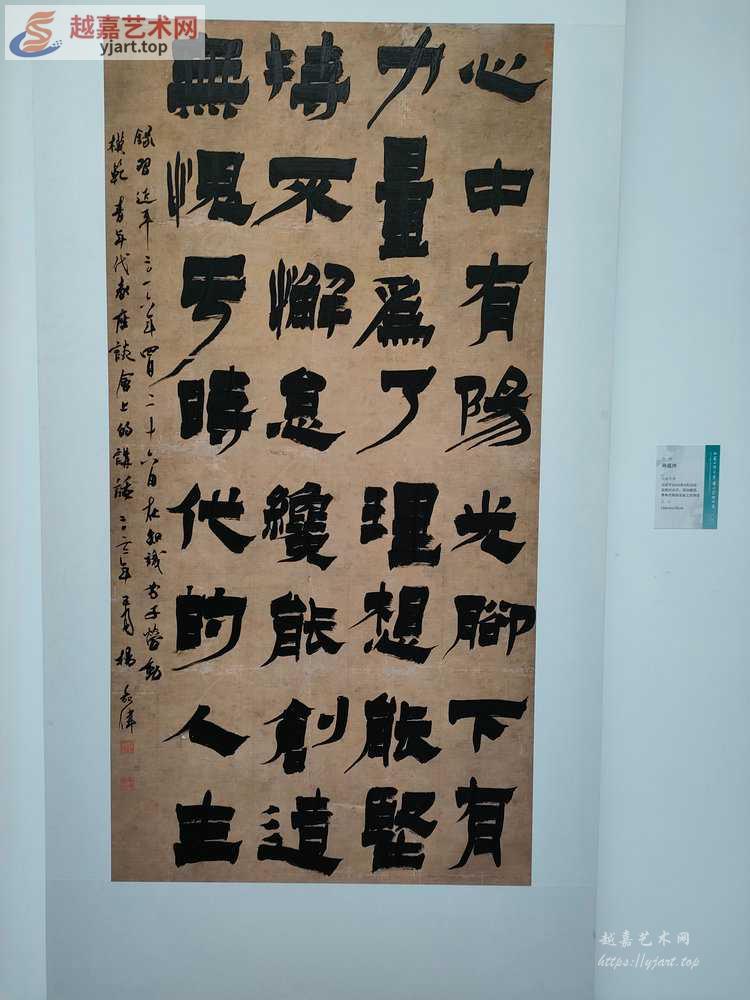 越嘉艺术网
yjart.top
心中有陽光腳下有
力量爲了理想能堅
持不懈怠纔能創造
無愧亏時代的人生
錄習近平二〇一六年四月二十六日在知識分子勞動
模範青年代表座談會上的講話 年 楊
越嘉艺术网
https://yjart.top